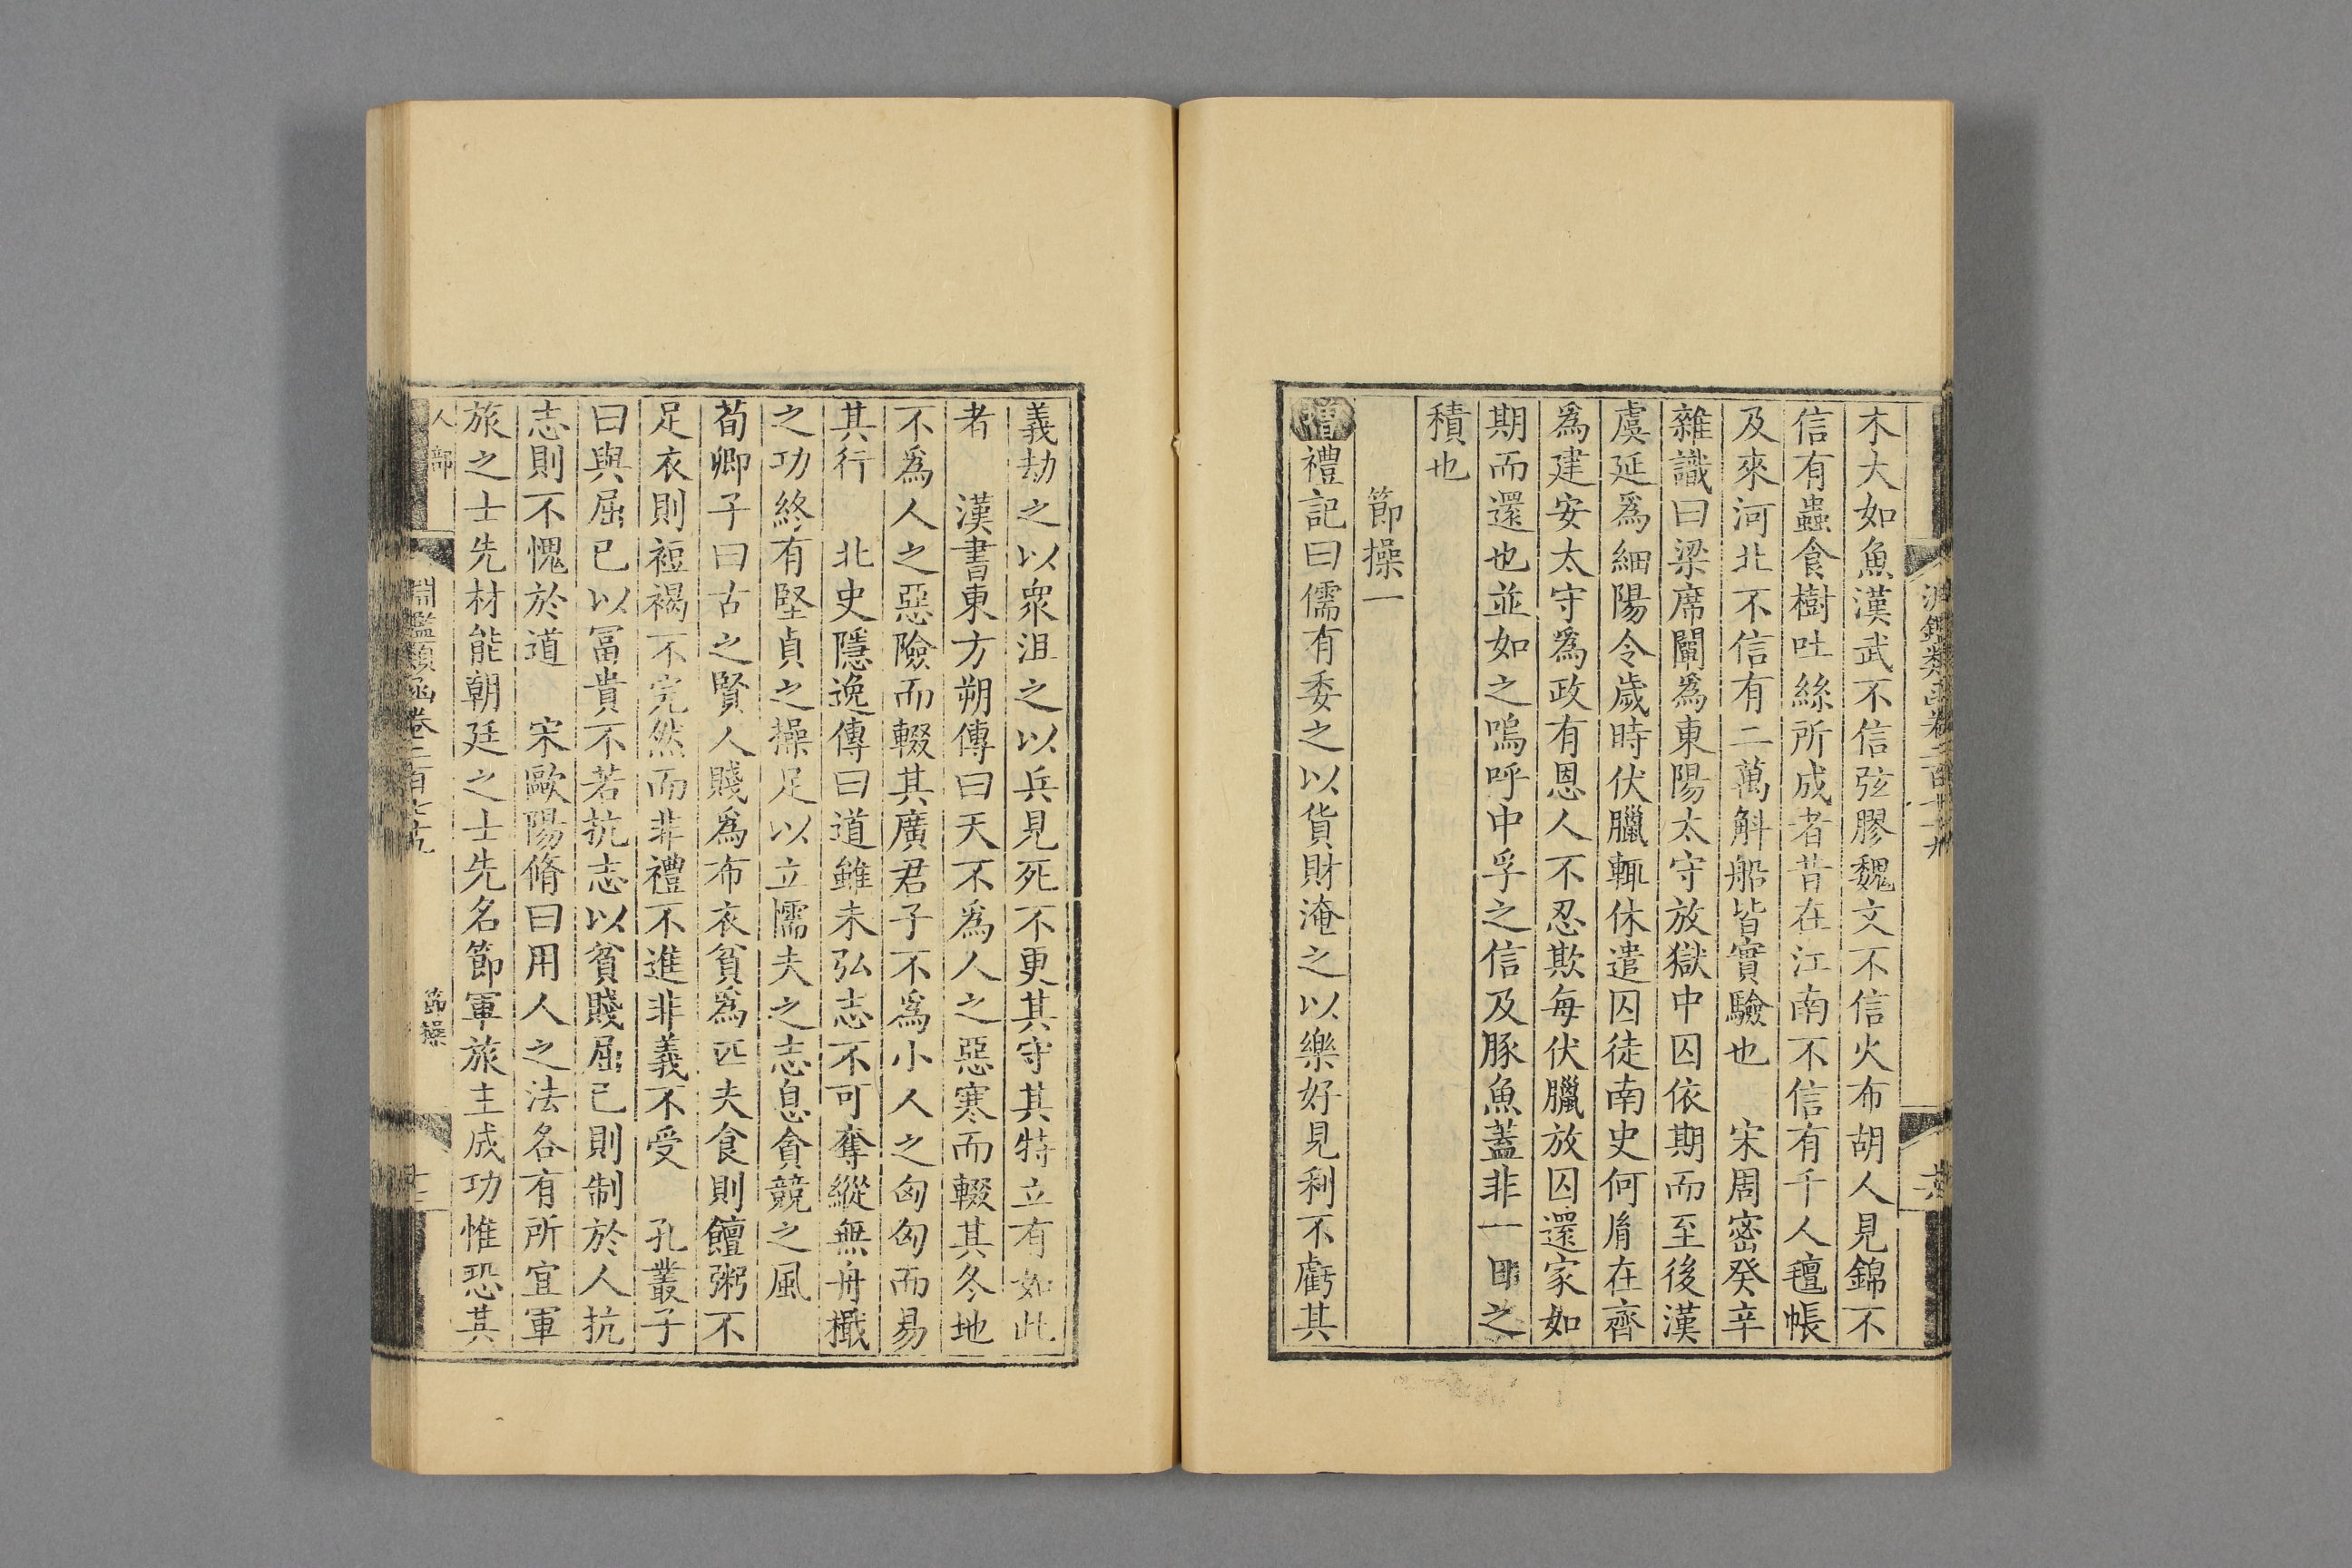 木大如魚漢武不信弦膠魏文不信火布胡人見錦不
信有蟲食樹吐絲所成者昔在江南不信有千人氊帳
及來河北不信有二萬斛船皆實驗也　宋周密癸辛
雜識曰梁席闡爲東陽太守放獄中囚依期而至後漢
虞延爲細陽令歲時伏臘輒休遣囚徒南史何胤在齊
爲建安太守爲政有恩人不忍欺每伏臘放囚還家如
期而還也並如之嗚呼中孚之信及豚魚蓋非一日之
積也
節操一
增禮記曰儒有委之以貨財淹之以樂好見利不虧其
義劫之以衆沮之以兵見死不更其守其特立有如此
者　漢書東方朔傳曰天不爲人之惡寒而輟其冬地
不爲人之惡險而輟其廣君子不爲小人之匈匈而易
其行　北史隱逸傳曰道雖未弘志不可奪縱無舟檝
之功終有堅貞之操足以立懦夫之志息貪競之風
荀卿子曰古之賢人賤爲布衣貧爲匹夫食則饘粥不
足衣則裋褐不完然而非禮不進非義不受　孔叢子
曰與屈已以冨貴不若抗志以貧賤屈已則制於人抗
志則不愧於道　宋歐陽脩曰用人之法各有所宜軍
旅之士先材能朝廷之士先名節軍旅主成功惟恐其
人部　淵鑑類函卷二百七十九　節操